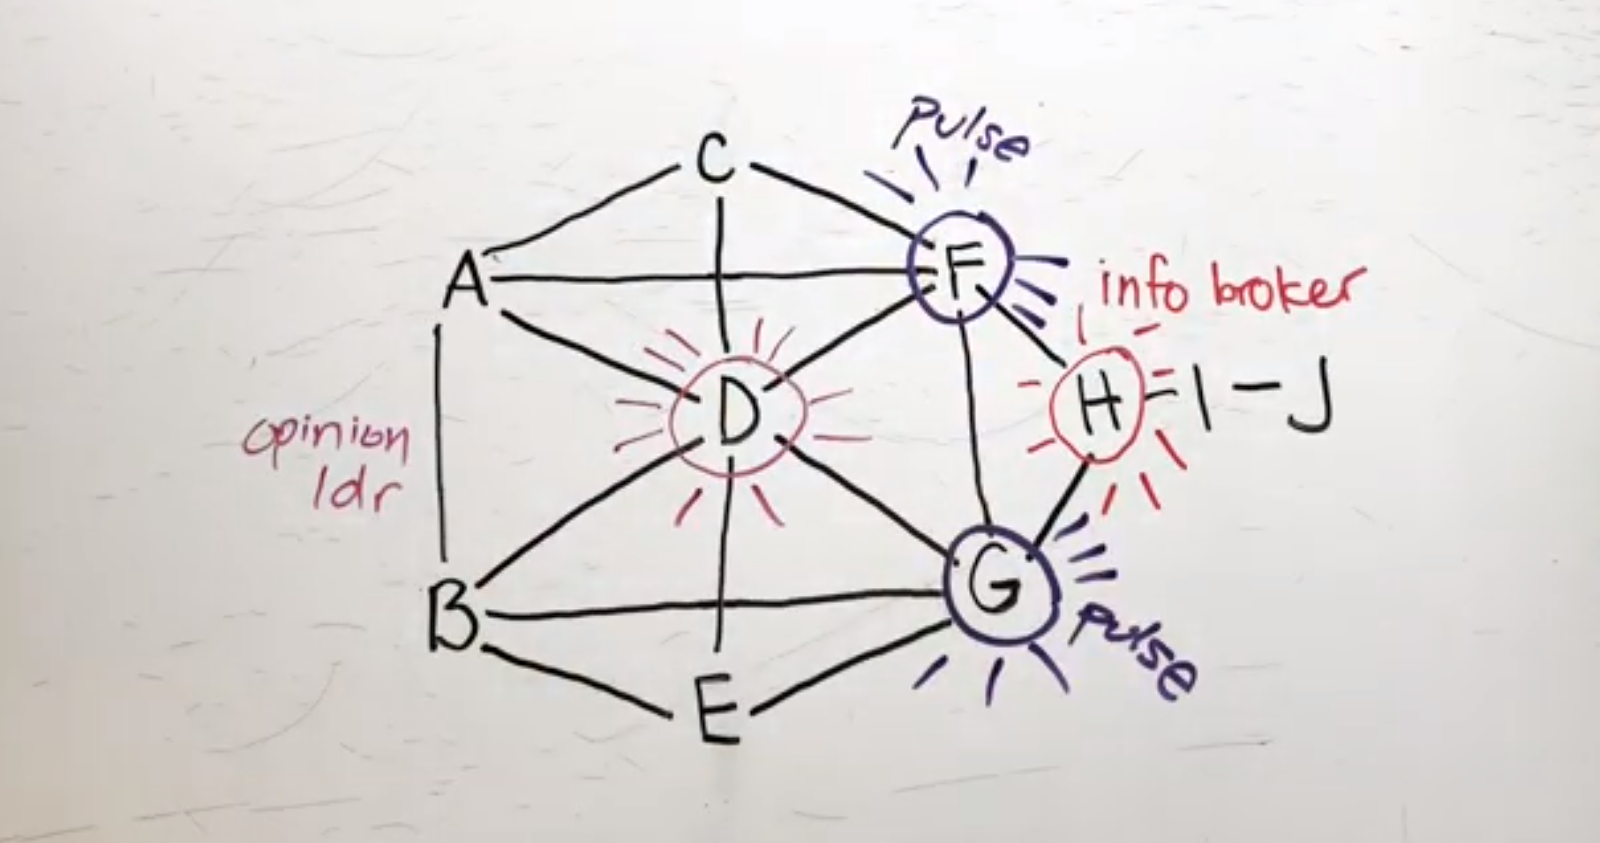 pulse
C
A
F
info broker
D
H
I – J
opinion
ldr
G
B
pulse
E